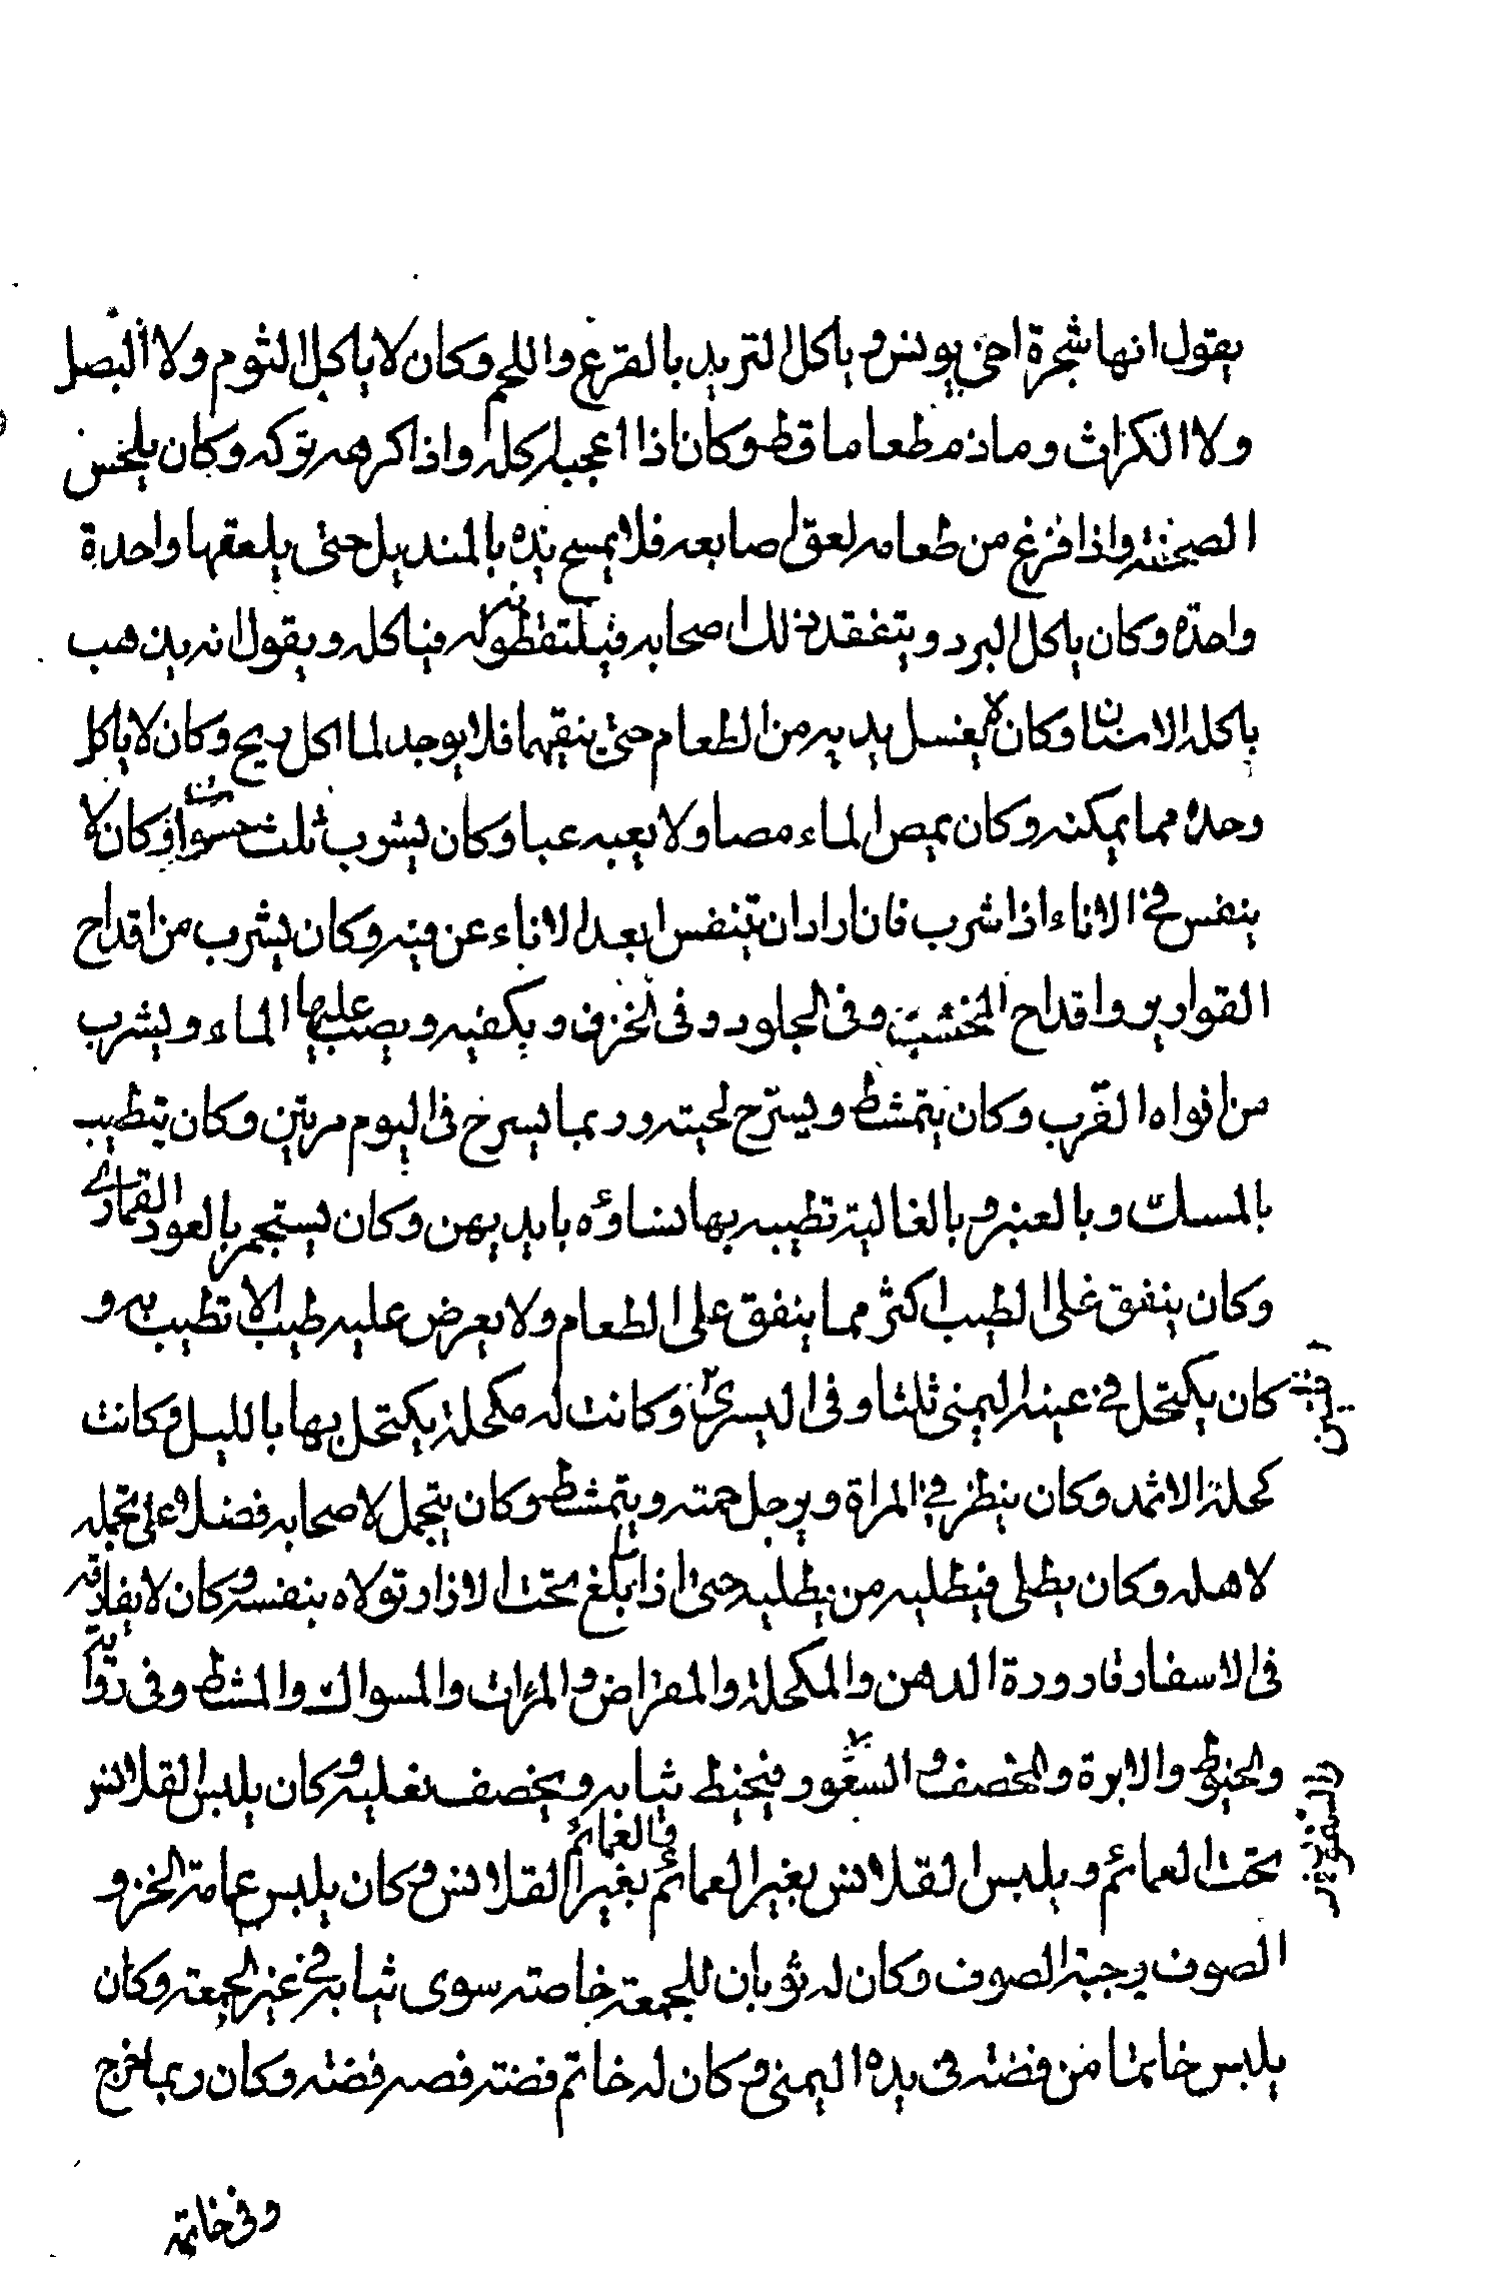 يقول انها شجرة اخى يونس و ياكل التريد بالقرع واللحم وكان لا ياكل الثوم ولا البصل
ولا الكراث وما ذم طعاما قط وكان اذا اعجبه اكله واذا كرهه تركه وكان يلحس
الصحفة واذا فرغ من طعامه لعق اصابعه فلا يمسح يده بالمنديل حتى يلعقها واحدة
واحدة وكان ياكل البرد ويتفقد ذلك اصحابه فيلتقطونه له فياكله ويقول انه يذهب
باكلة الاسنان وكان لا يغسل يديه من الطعام حتى ينقيهما فلا يوجد لما اكل ريح وكان لا ياكل
وحده مما يمكنه وكان يمص الماء مصا ولا يعبه عبا وكان يشرب ثلث حسوات وكان لا
يتنفس فى الاناء اذا شرب فان اراد ان يتنفس ابعد الاناء عن فيه وكان يشرب من اقداح
القوارير واقداح الخشب وفى الجلود وفى الخزف و بكفيه ويصب عليها الماء ويشرب
من افواه القرب وكان يتمشط ويسرح لحيته وربما يسرح فى اليوم مرتين وكان يتطيب
بالمسك وبالعنبر و بالغالية تطيبه بها نساؤه بايديهن وكان يستجمر بالعود القمارى
وكان ينفق على الطيب اكثر مما ينفق على الطعام ولا يعرض عليه طيب الا تطيب به و
كان يكتحل فى عينه اليمنى ثلثا وفى اليسرى وكانت له مكحلة يكتحل بها بالليل وكانت
اثنتين
كحلة الاثمد وكان ينظر فى المراة ويرجل جمته ويتمشط وكان يتجمل لاصحابه فضلا على تجمله
لاهله وكان يطلى فيطليه من يطليه حتى اذا بلغ ما تحت الازار تولاه بنفسه وكان لا يفارقه
فى الاسفار قارورة الدهن والمكحلة والمقراض والمرات والمسواك والمشط وفى رواية
والخيوط والابرة والمخصف و السيور فيخيط ثيابه ويخصف نعليه وكان يلبس القلانس
تحت العمائم ويلبس القلانس بغير العمائم والعمائم بغير القلانس وكان يلبس عمامة الخز و
الصوف وجبة الصوف وكان له ثوبان للجمعة خاصة سوى ثيابه فى غير الجمعة وكان
يلبس خاتما من فضة فى يده اليمنى وكان له خاتم فضة فصه فضة وكان ربما خرج
وفى خاتمه